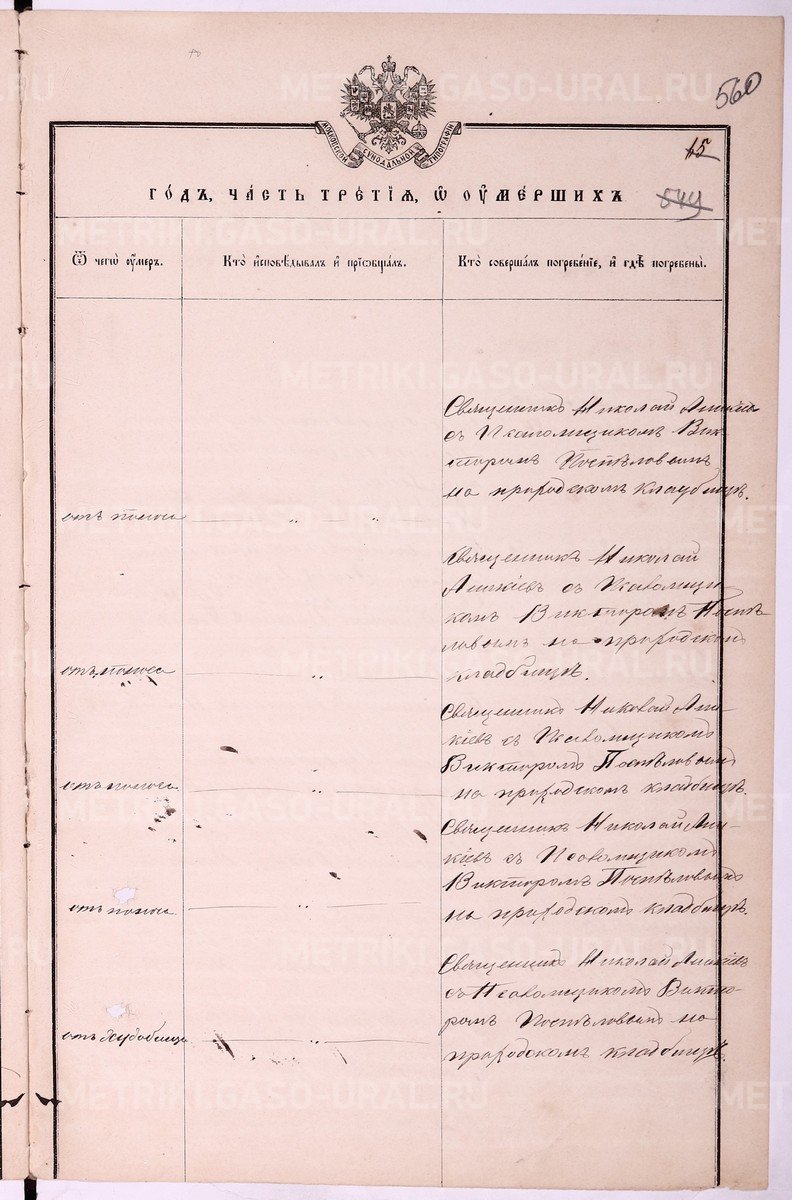 560
МОСКОВСКОЙ СѴНОДАЛЬНОЙ ТИПОГРАФІИ
15
549
ГОДЪ, ЧАСТЬ ТРЕТІЯ, Ѿ ОУМЕРШИХЪ
Ѿ чегѡ оумеръ.
Кто исповѣдывалъ и пріѡбщалъ.
Кто совершалъ погребеніе, и гдѣ погребены.
Священникъ Николай
съ Псаломщикомъ Вик-
торомъ Поспѣловымъ
на приходскомъ кладбищѣ.
отъ поноса „ „
Священникъ Николай
съ Псаломщи-
комъ Викторомъ Поспѣ-
ловымъ на приходском
кладбищѣ.
отъ поноса „
Священникъ Николай
съ Псаломщикомъ
Викторомъ Поспѣловымъ
на приходскомъ кладбищѣ.
отъ поноса „
Священникъ Николай
съ Псаломщикомъ
Викторомъ Поспѣловымъ
на приходскомъ кладбищѣ.
отъ поноса „
Священникъ Николай
съ Псаломщикомъ Викто-
ромъ Поспѣловымъ на
приходскомъ кладбищѣ.
отъ „
METRIKI.GASO-URAL.RU